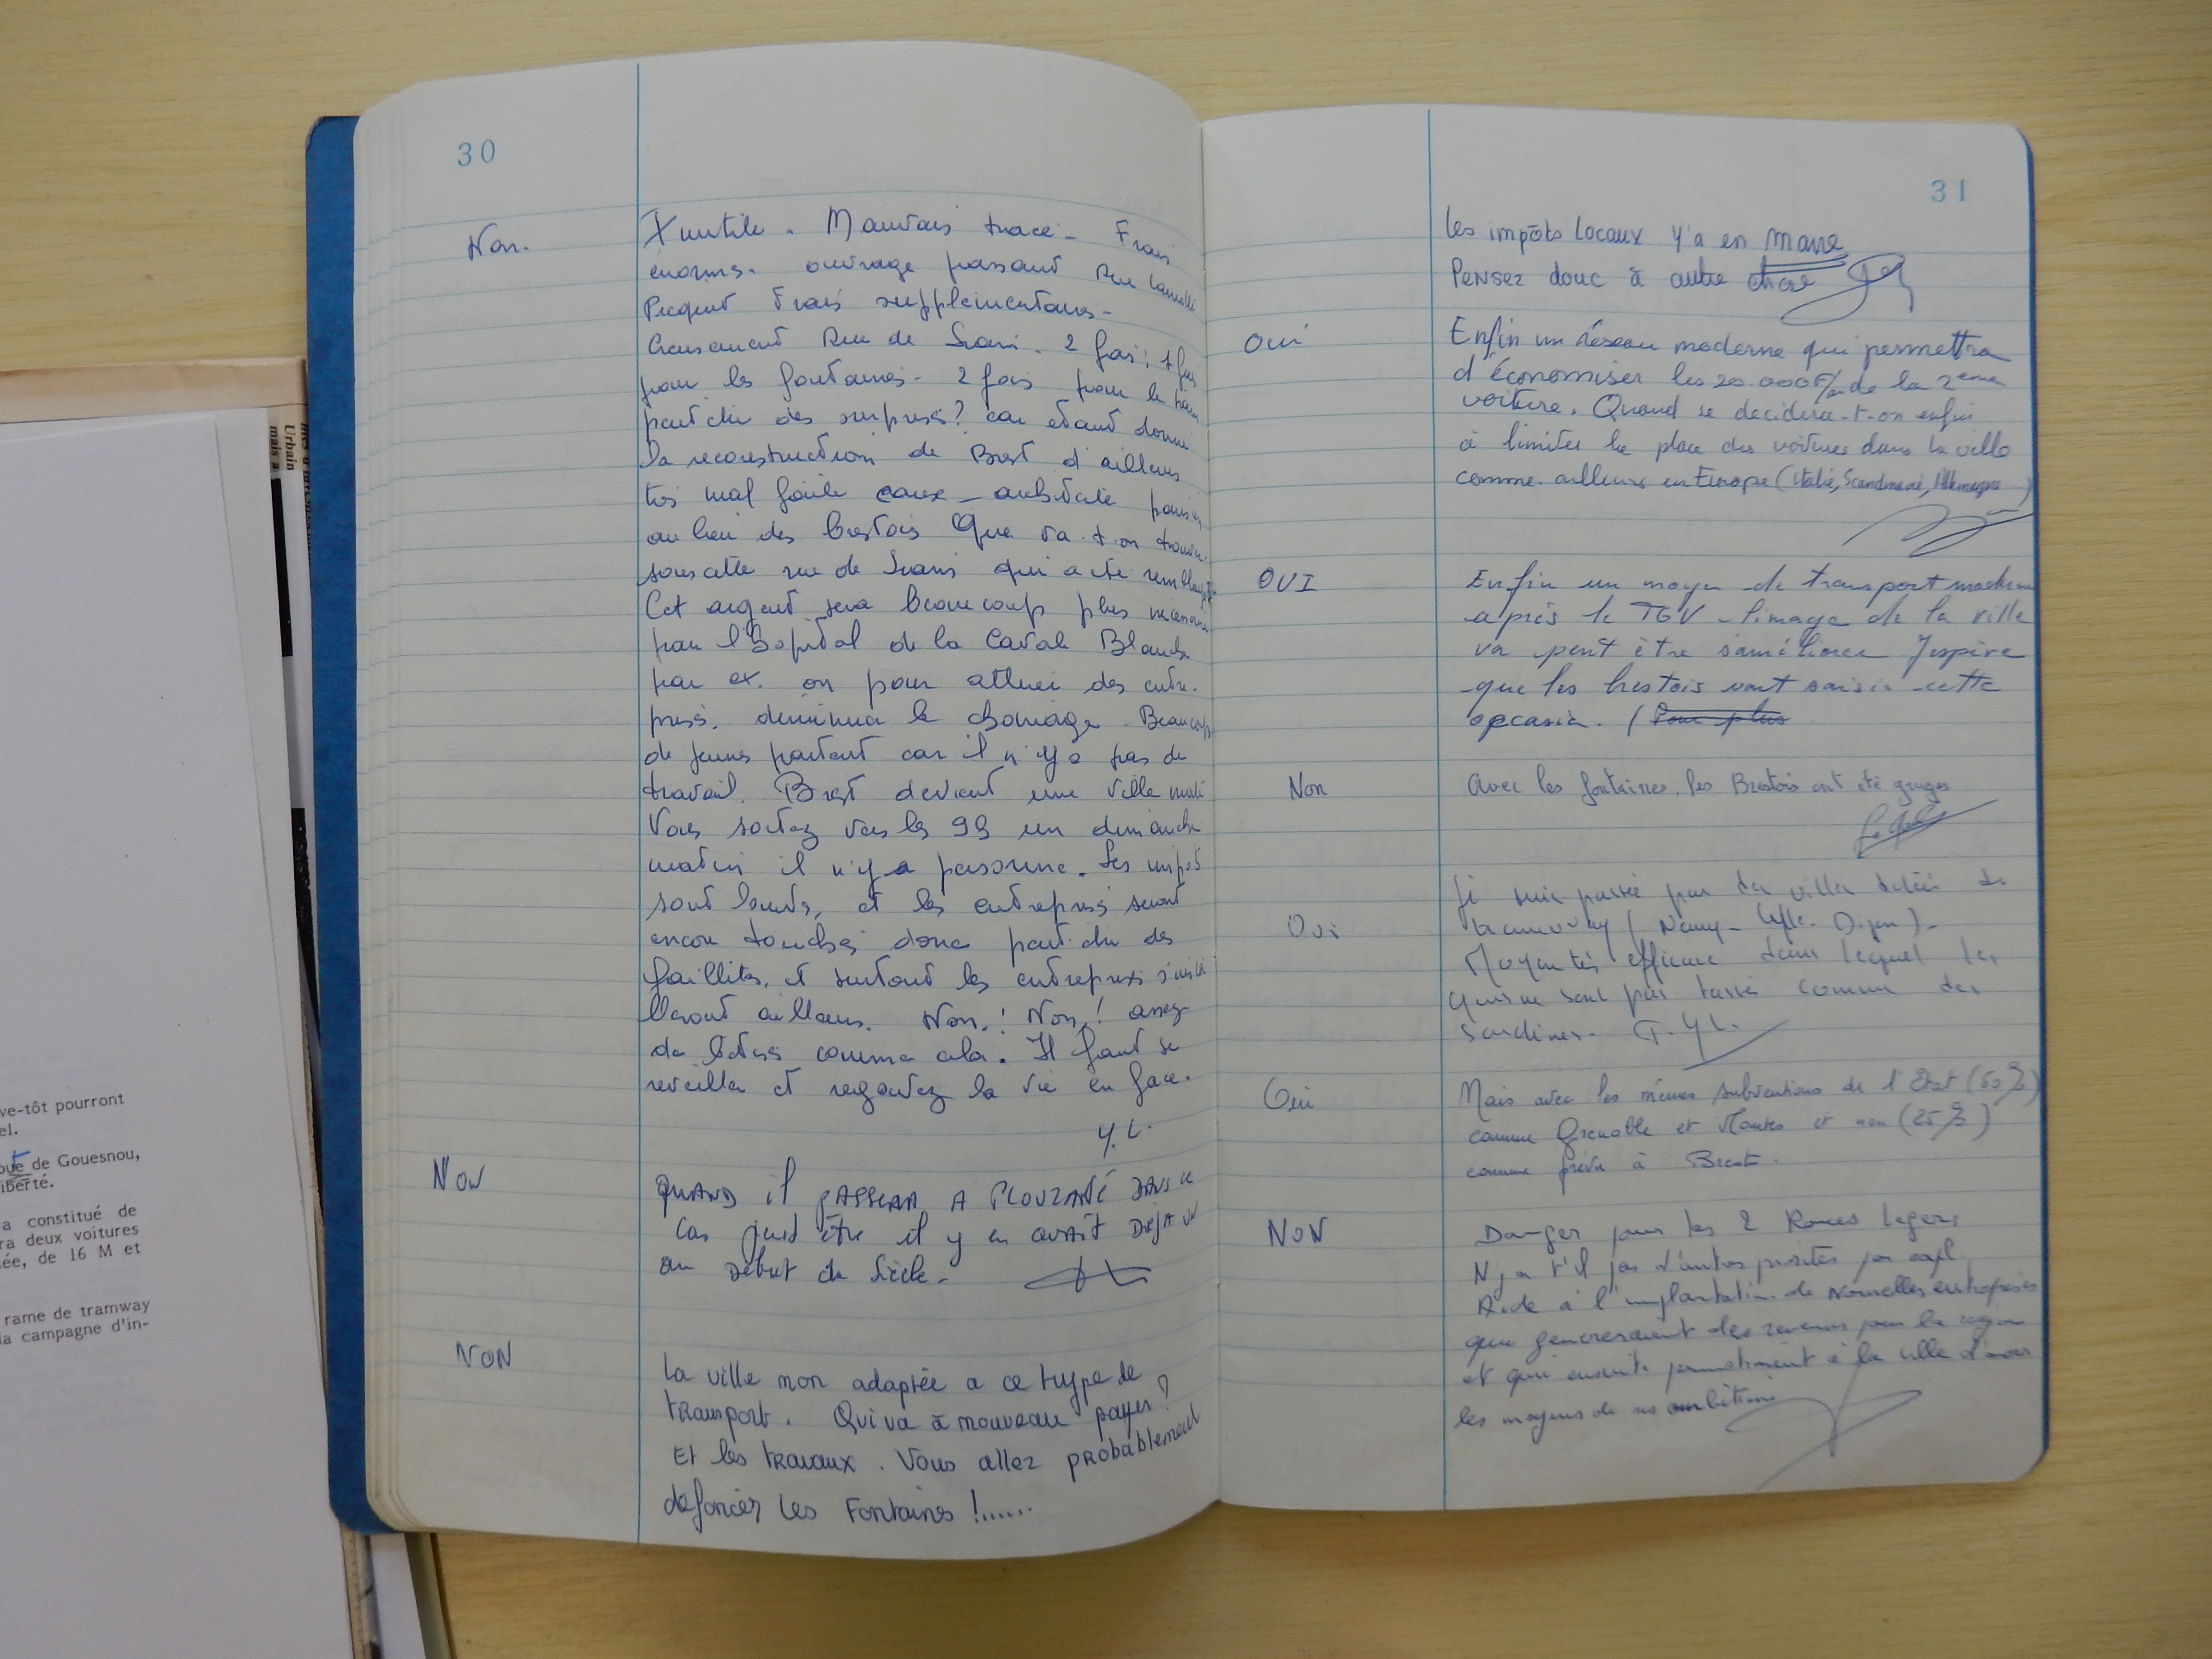 30
Non.
Inutile. Mauvais tracé - Frais
énormes. ouvrage passant Rue Camille
frais supplémentaires -
Rue de Siam. 2 fois; 1 fois
pour les fontaines - 2 fois pour le
peut être des surprises? car étant donné
la reconstruction de Brest d'ailleurs
très mal faite architecte parisien
au lieu des brestois Que va-t-on trouver
sous cette rue de Siam qui a été
Cet argent sera beaucoup plus
pour l'hopital de la Cavale Blanche
par ex. ou pour attirer des entre.
prises. diminuer le chomage - Beaucoup
de jeunes partent car il n'y a pas de
travail. Brest devient une ville
Vous sortez vers les 9h un dimanche
matin il n'y a personne. Les impot
sont lourds, et les entreprises seront
encore touchés donc peut être des
faillites, et surtout les entreprises s'insta
lleront ailleurs. Non,! Non,! assez
de comme cela. Il faut se
reveiller et regardez la vie en face.
Y.L.
NON
QUAND il PASSERA A PLOUZANÉ DANS CE
Cas peut être il y en avait DéjA un
au Début du Siècle -
NON
La ville non adaptée a ce type de
transport. Qui va à nouveau payer?
Et les travaux. Vous allez probablement
défoncer les Fontaines !......
31
les impôts locaux y'a en marre
Pensez donc à autre chose
Oui
Enfin un réseau moderne qui permettra
d'économiser les 20.000F/an de la 2ème
voiture. Quand se decidera-t-on enfin
à limiter la place des voitures dans la ville
comme ailleurs en Europe (Italie, Scandinavie, Allemagne)
OUI
Enfin un moyen de transport moderne
après le TGV l'image de la ville
va peut être s'améliorer J'espère
que les brestois vont saisir cette
occasion. (Pour plus
Non
Avec les fontaines, les Brestois ont été grugés
Oui
Je suis passée par des villes dotées de
tramway (Nancy - Lille - Dijon) -
Moyen très efficace dans lequel les
gens ne sont pas tassés comme des
sardines -
Oui
Mais avec les mêmes subventions de l'Etat (50%)
comme Grenoble et Nantes et non (25%)
comme prévu à Brest.
NON
Danger pour les 2 Roues legers
N'y a t'il pas d'autres priorités par expl.
Aide à l'implantation de Nouvelles entreprises
qui genereraient des revenus pour la région
et qui ensuite permettraient à la ville d'avoir
les moyens de ses ambitions
ve-tôt pourront
el.
de Gouesnou,
iberté.
a constitué de
ra deux voitures
ée, de 16 M et
rame de tramway
la campagne d'in-
Urbain
mais a